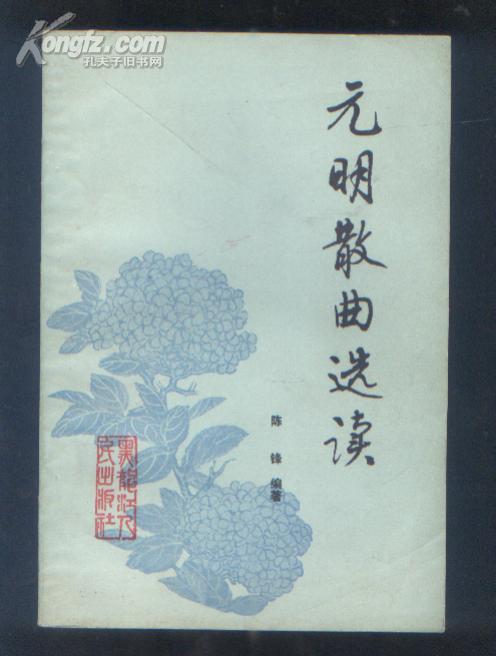 Kongfz.com
孔夫子旧书网
元明散曲选读
陈锋编著
黑龙江人
民出版社